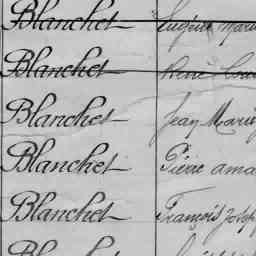 Blanchet Eugène Marie
Blanchet René Lou
Blanchet Jean Marie
Blanchet Pierre ama
Blanchet François Josep
Blanchet